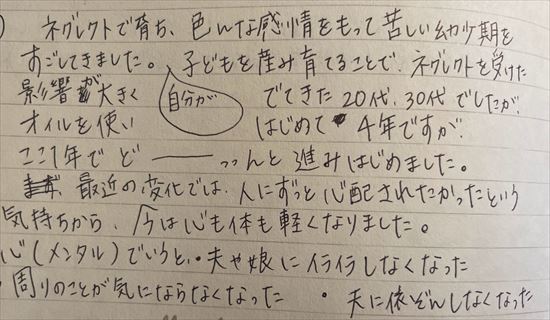 ネグレクトで育ち、色んな感情をもって苦しい幼少期を
すごしてきました。子どもを産み育てることで、ネグレクトを受けた
影響が大きく 自分が でてきた20代、30代でしたが、
オイルを使い はじめて 4年ですが、
ここ1年でど―――っっんと進みはじめました。
最近の変化では、人にずっと心配されたかったという
気持ちから、今は心も体も軽くなりました。
心(メンタル)でいうと、・夫や娘にイライラしなくなった
・周りのことが気にならなくなった ・夫に依ぞんしなくなった